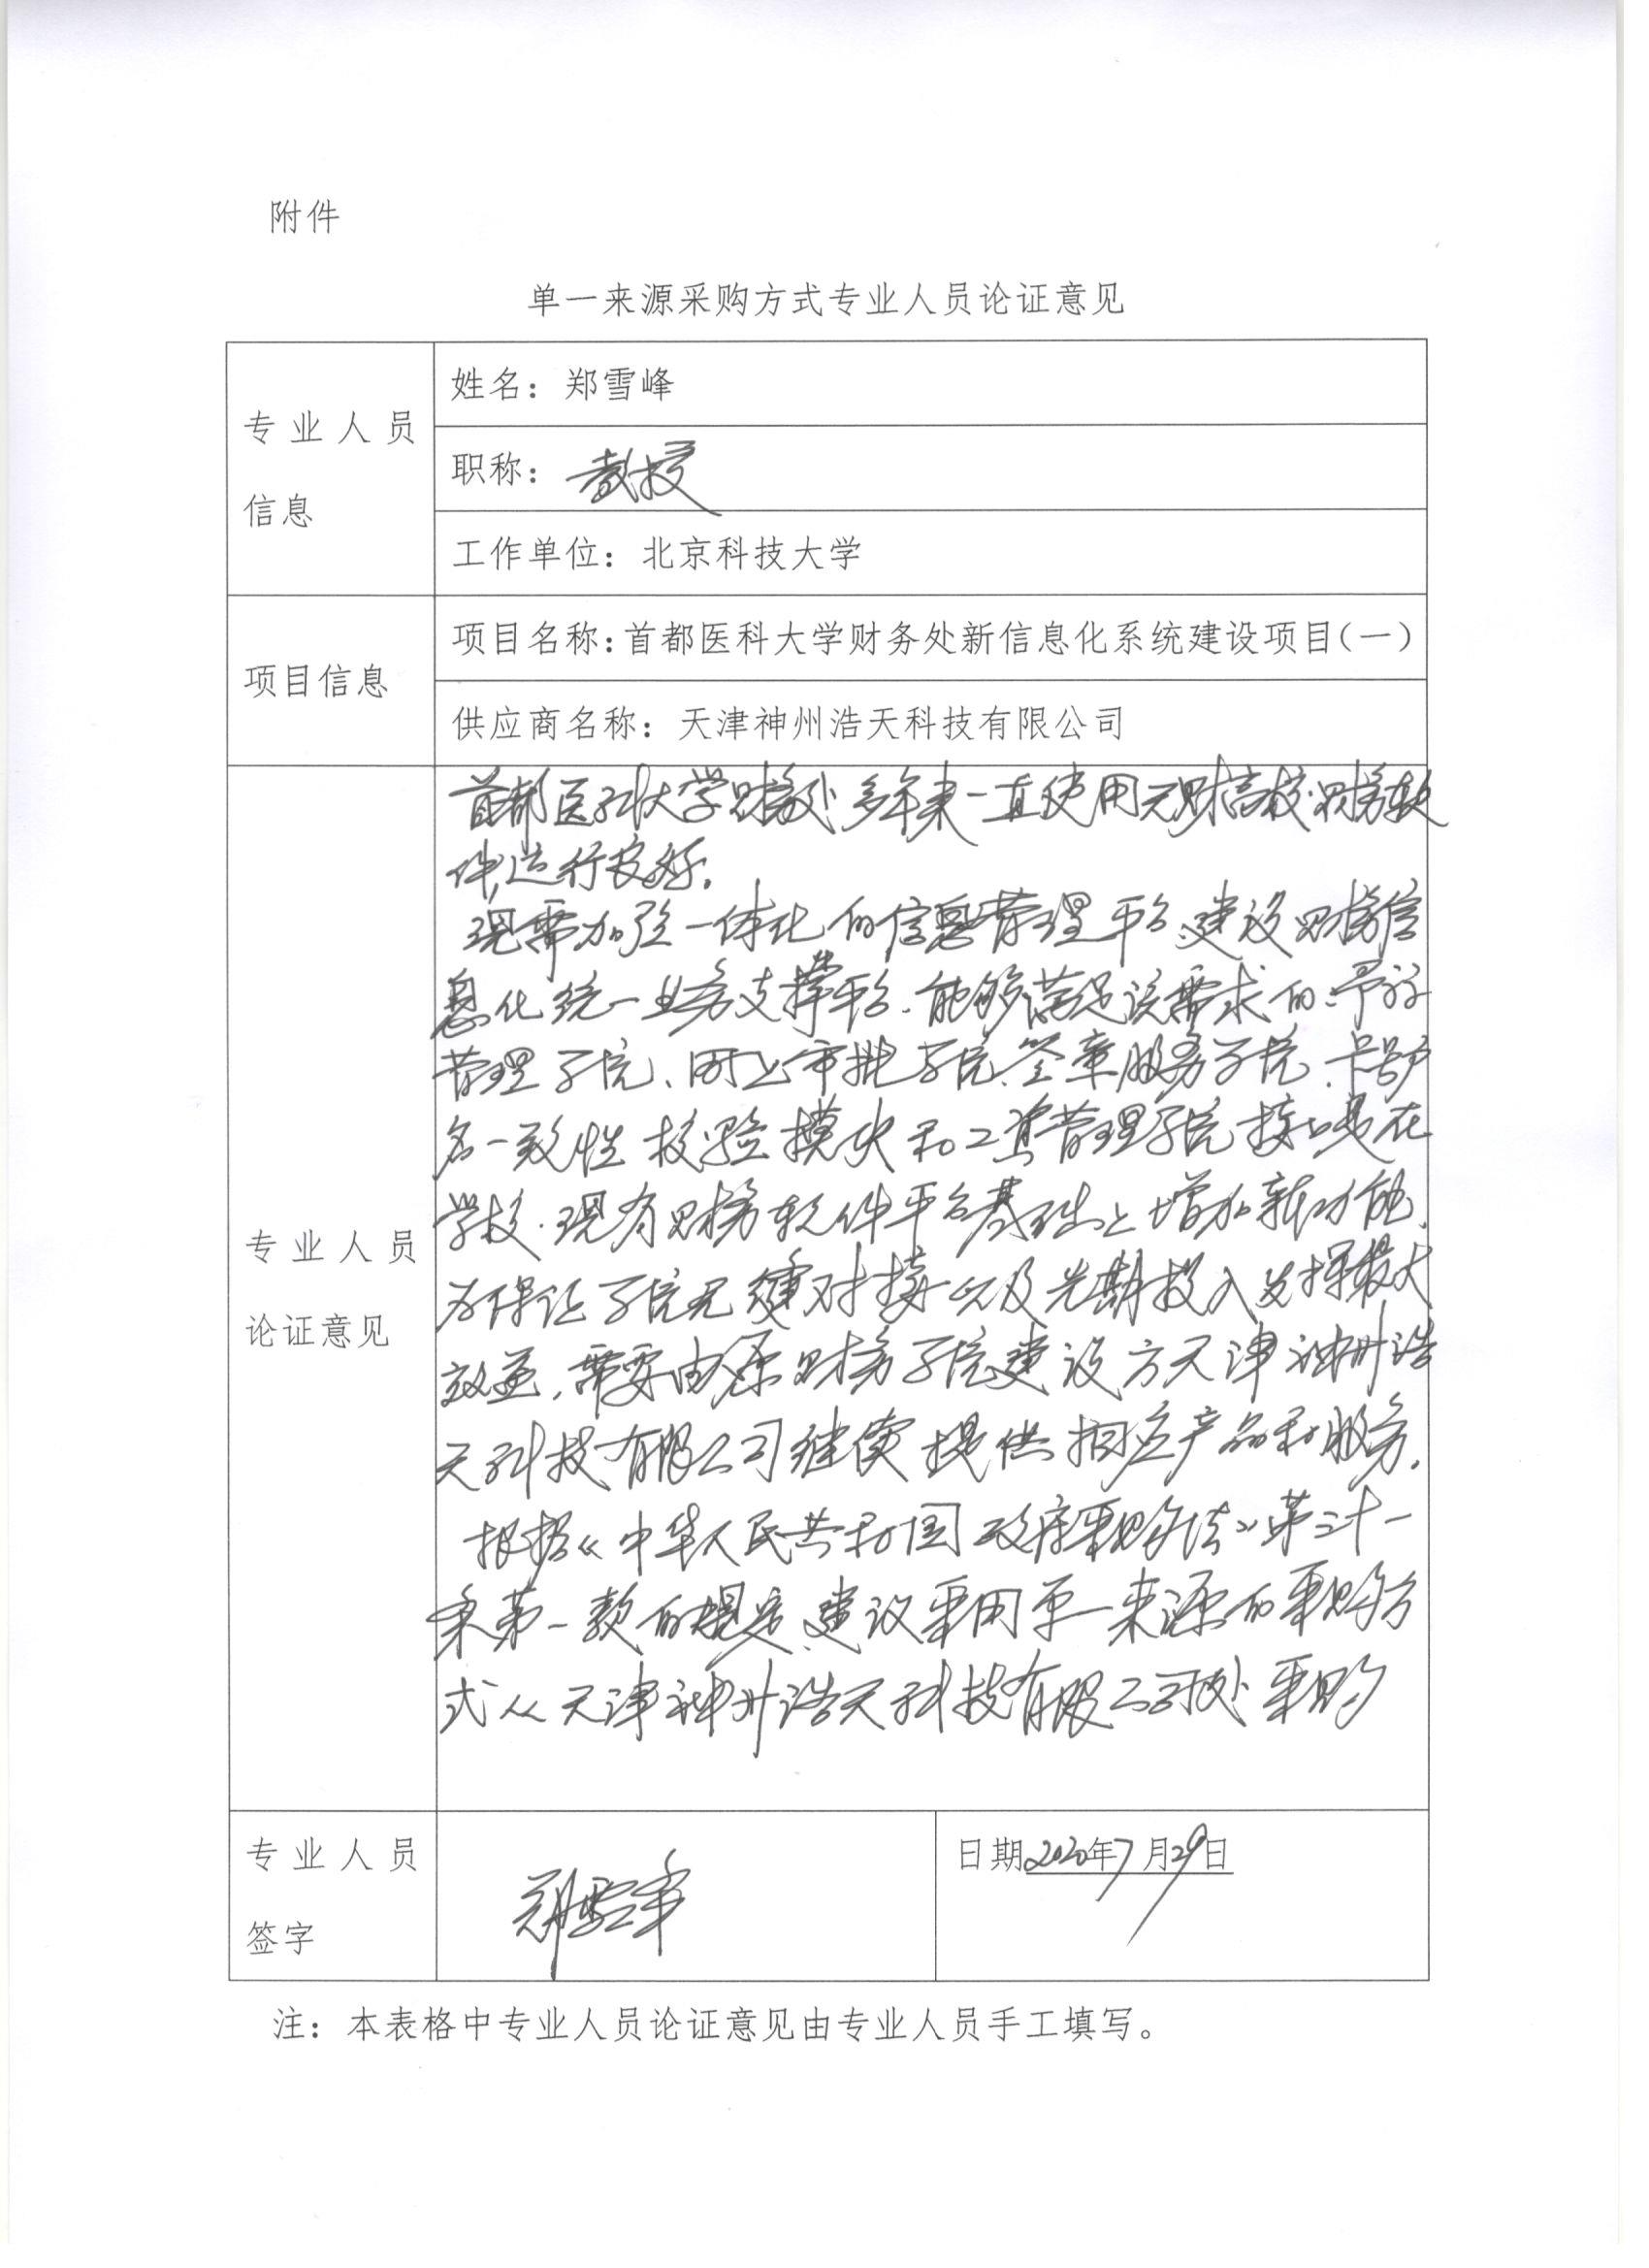 附件
单一来源采购方式专业人员论证意见
专业人员
信息
姓名：郑雪峰
职称：教授
工作单位：北京科技大学
项目信息
项目名称：首都医科大学财务处新信息化系统建设项目（一）
供应商名称：天津神州浩天科技有限公司
专业人员
论证意见
首都医科大学财务处多年来一直使用天财高校财务软
件,运行良好.
现需加强一体化的信息管理平台,建设财务信
息化统一业务支撑平台.能够满足该需求的:
管理子系统、网上审批子系统、签章服务子系统、卡号户
名一致性校验模块和工资管理子系统接口是在
学校现有财务软件平台基础上增加新功能.
为保证子系统无缝对接以及先期投入发挥最大
效益,需要由原财务子系统建设方天津神州浩
天科技有限公司继续提供相应产品和服务.
根据《中华人民共和国政府采购法》第三十一
条第一款的规定,建议采用单一来源的采购方
式从天津神州浩天科技有限公司处采购
专业人员
签字
郑雪峰
日期2020年7月29日
注：本表格中专业人员论证意见由专业人员手工填写。